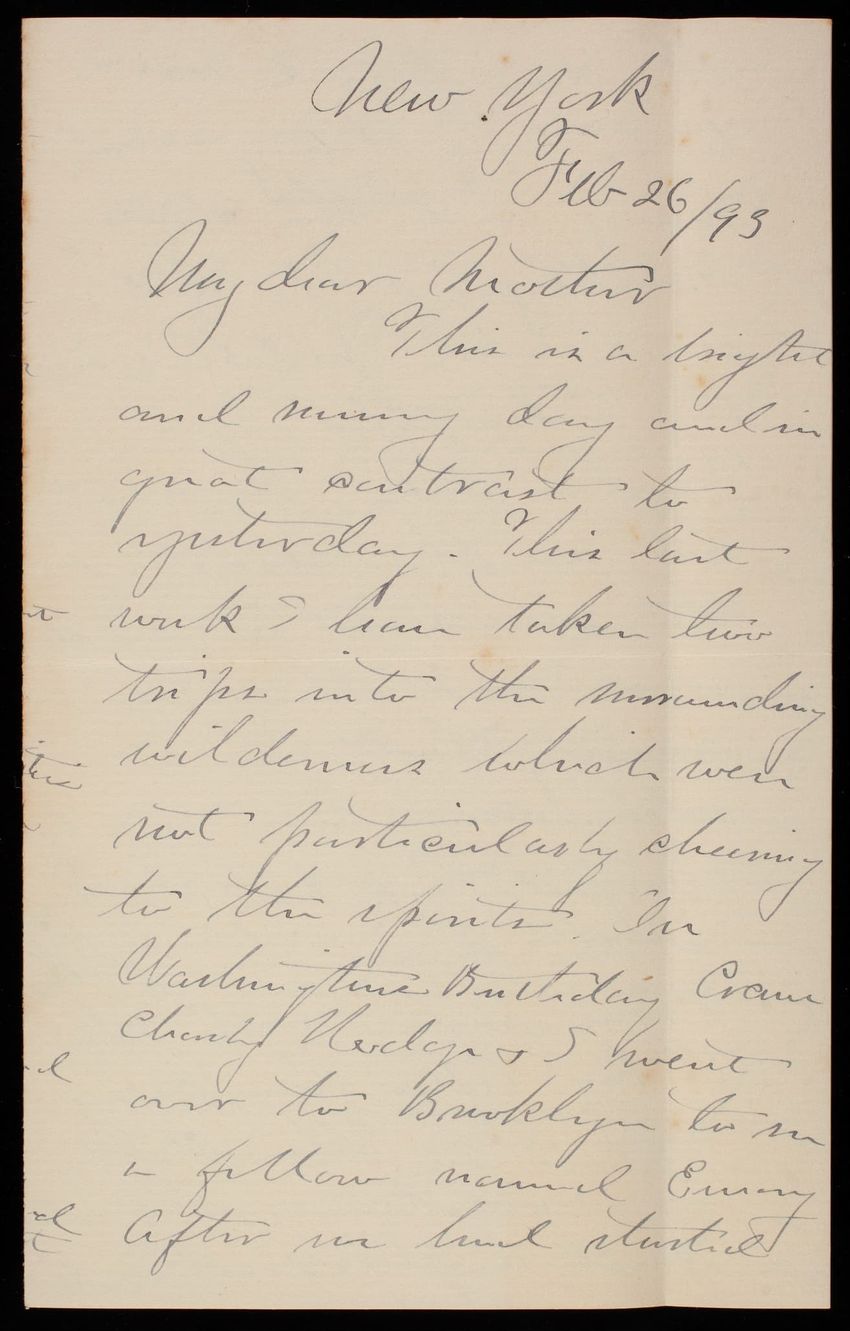 New York
Feb 26/93
My dear Mother
This is a bright
and sunny day and in
great contrast to
yesterday. This last
week I have taken two
trips into the surrounding
wilderness which were
not particularly cheering
to the spirits. On
Washingtons Birthday Crane
Charly Hedge & I went
over to Brooklyn to see
a fellow named Emory
After we had started